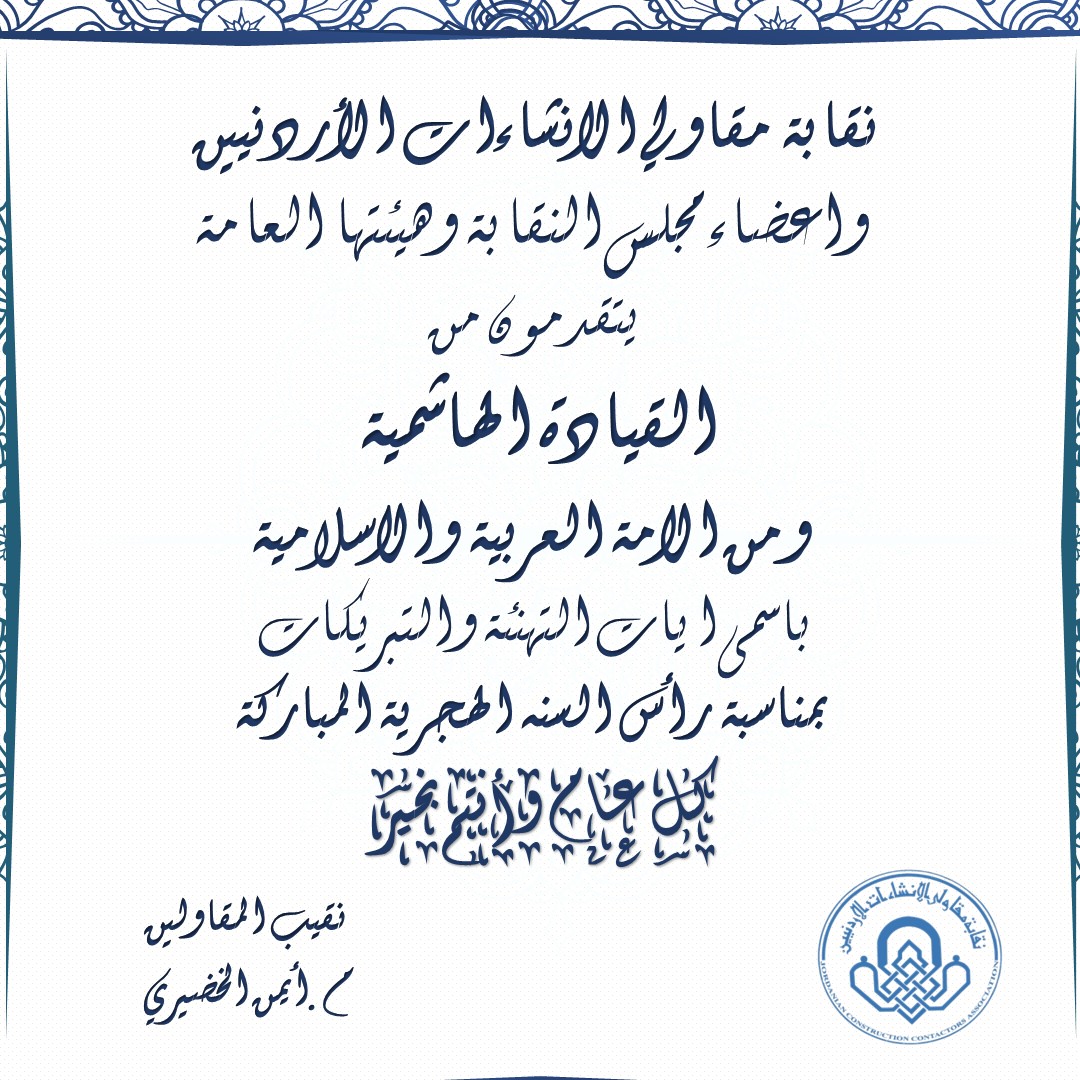 نقابة مقاولي الانشاءات الأردنيين
واعضاء مجلس النقابة وهيئتها العامة
يتقدمون من
القيادة الهاشمية
ومن الامة العربية والاسلامية
باسمى ايات التهنئة والتبريكات
بمناسبة رأس السنه الهجرية المباركة
كل عام وأنتم بخير
نقيب المقاولين
م.أيمن الخضيري
نقابة مقاولي الإنشاءات الأردنيين
JORDANIAN CONSTRUCTION CONTACTORS ASSOCIATION